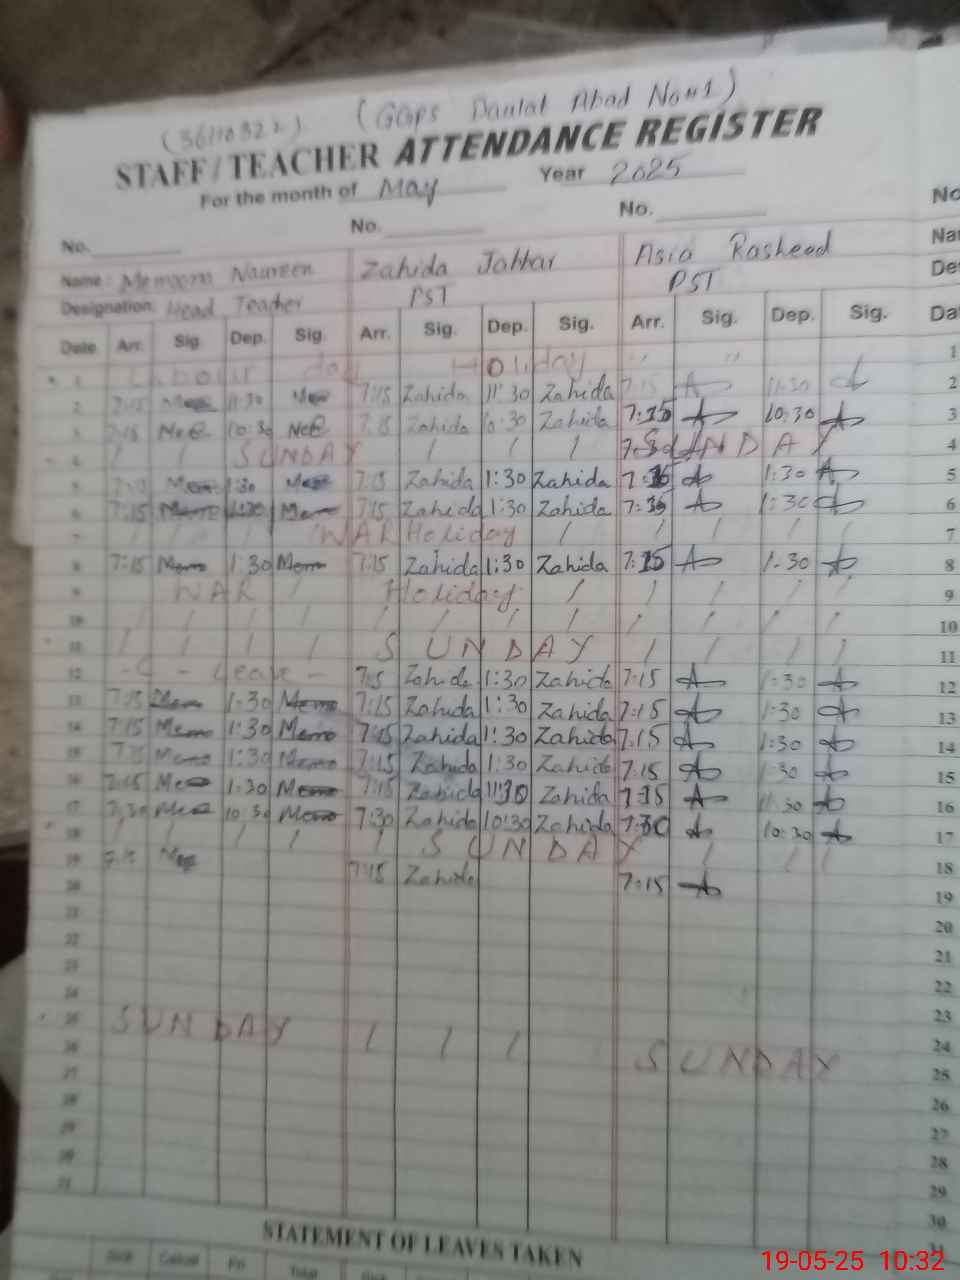 (GGPS Daulat Abad No#1)
STAFF/TEACHER ATTENDANCE REGISTER
For the month of May Year 2025
No. No. No. No
Name: Naureen Zahida Jabbar Asia Rasheed Na
Designation: Head Teacher PST PST De
Date Arr. Sig. Dep. Sig. Arr. Sig. Dep. Sig. Arr. Sig. Dep. Sig. Da
1 Labour day Holiday " " 1
2 7:15 11:30 7:15 Zahida 11:30 Zahida 7:15 A 11:30 A 2
3 7:15 10:30 7:15 Zahida 10:30 Zahida 7:15 A 10:30 A 3
4 / / SUNDAY / / / SUNDAY 4
5 7:15 1:30 7:15 Zahida 1:30 Zahida 7:15 A 1:30 A 5
6 7:15 1:30 7:15 Zahida 1:30 Zahida A 1:30 A 6
7 / / / WAR Holiday / / / / / 7
8 7:15 Memo 1:30 Memo 7:15 Zahida 1:30 Zahida 7:15 A 1:30 A 8
9 WAR / Holiday / / / / / 9
10 / / / / / / / / / / / / 10
11 / / / / SUNDAY / / / / 11
12 - C - Leave - 7:15 Zahida 1:30 Zahida 7:15 A 1:30 A 12
13 7:15 Memo 1:30 Memo 7:15 Zahida 1:30 Zahida 7:15 A 1:30 A 13
14 7:15 Memo 1:30 Memo 7:15 Zahida 1:30 Zahida 7:15 A 1:30 A 14
15 7:15 Memo 1:30 Memo 7:15 Zahida 1:30 Zahida 7:15 A 1:30 A 15
16 7:15 1:30 Memo 7:15 Zahida 11:30 Zahida 7:15 A 11:30 A 16
17 7:30 10:30 Memo 7:30 Zahida 10:30 Zahida 7:30 A 10:30 A 17
18 / / / / / SUNDAY / / / 18
19 7:15 Zahida 7:15 A 19
20 20
21 21
22 22
23 23
24 24
25 SUNDAY / / / SUNDAY 25
26 26
27 27
28 28
29 29
30 30
31 31
STATEMENT OF LEAVES TAKEN
Sick Casual Pri Total Sick Casual
19-05-25 10:32